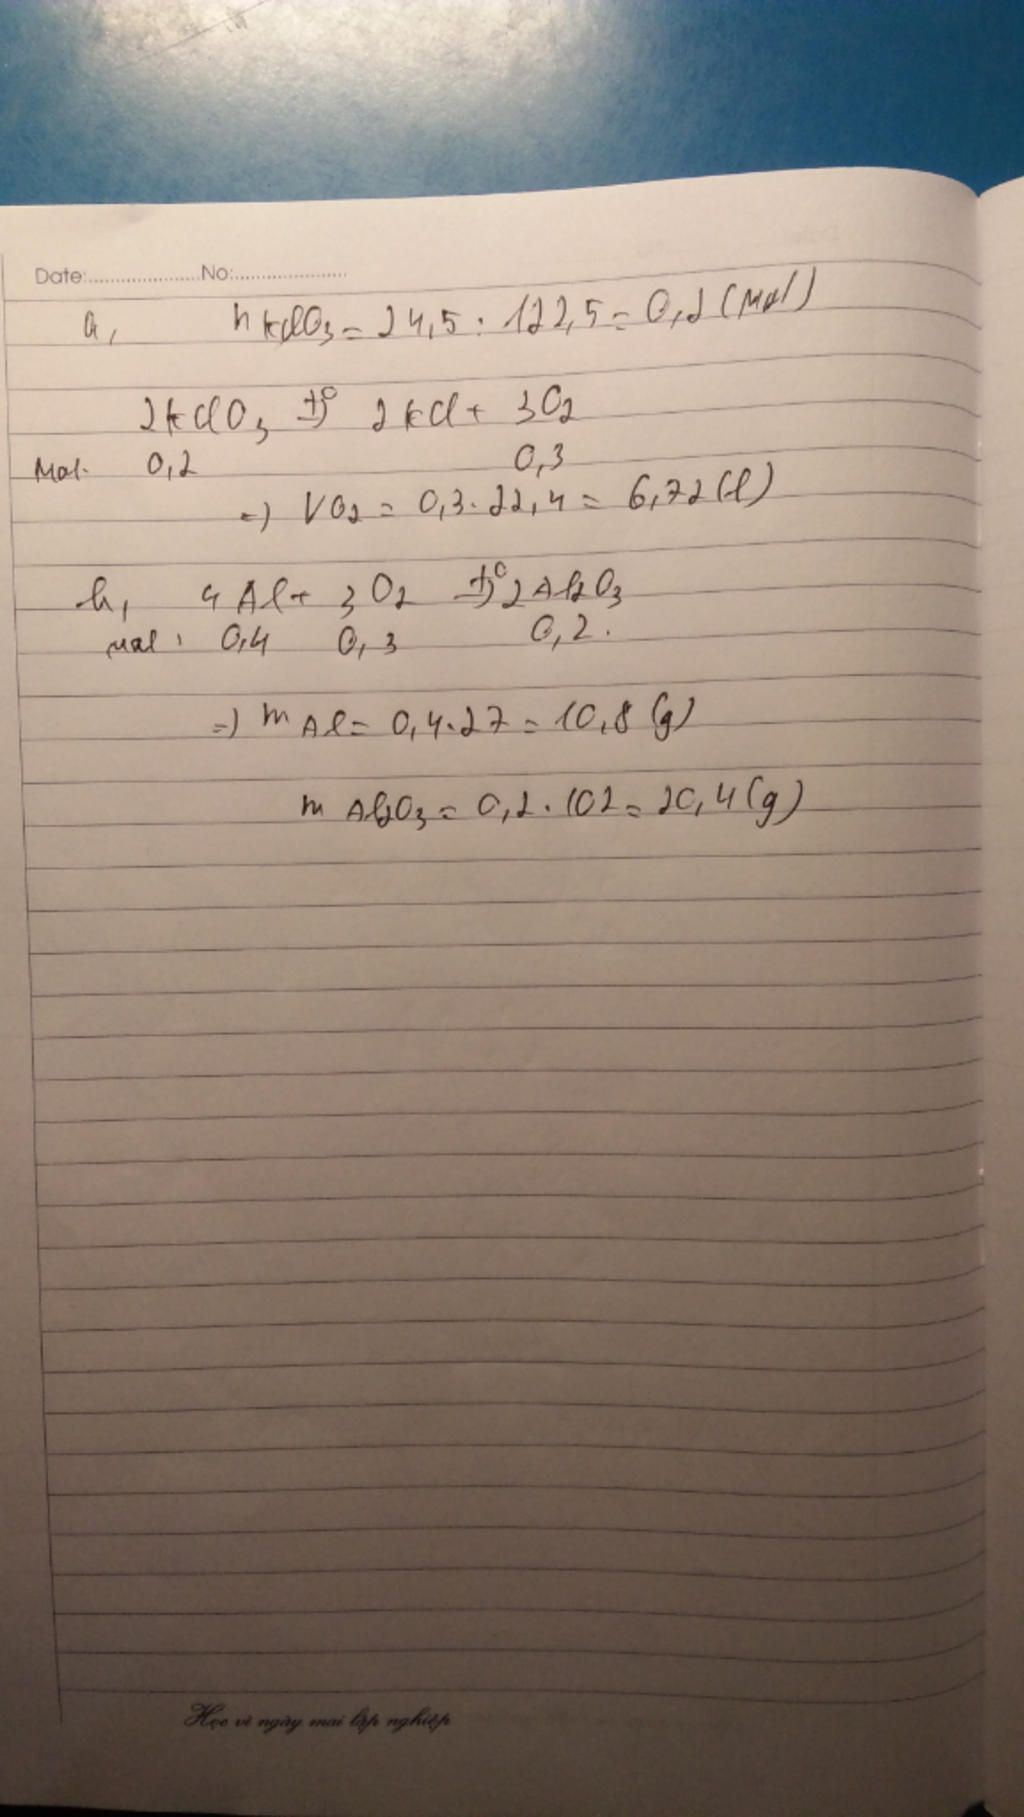 Date:.....................No:.....................
a, nKClO3 = 24,5 : 122,5 = 0,2 (mol)
2KClO3 t°→ 2KCl + 3O2
Mol: 0,2 0,3
=) VO2 = 0,3.22,4 = 6,72 (l)
b, 4Al + 3O2 t°→ 2Al2O3
mol : 0,4 0,3 0,2.
=) mAl = 0,4.27 = 10,8 (g)
mAl2O3 = 0,2.102 = 20,4 (g)
Học vì ngày mai lập nghiệp